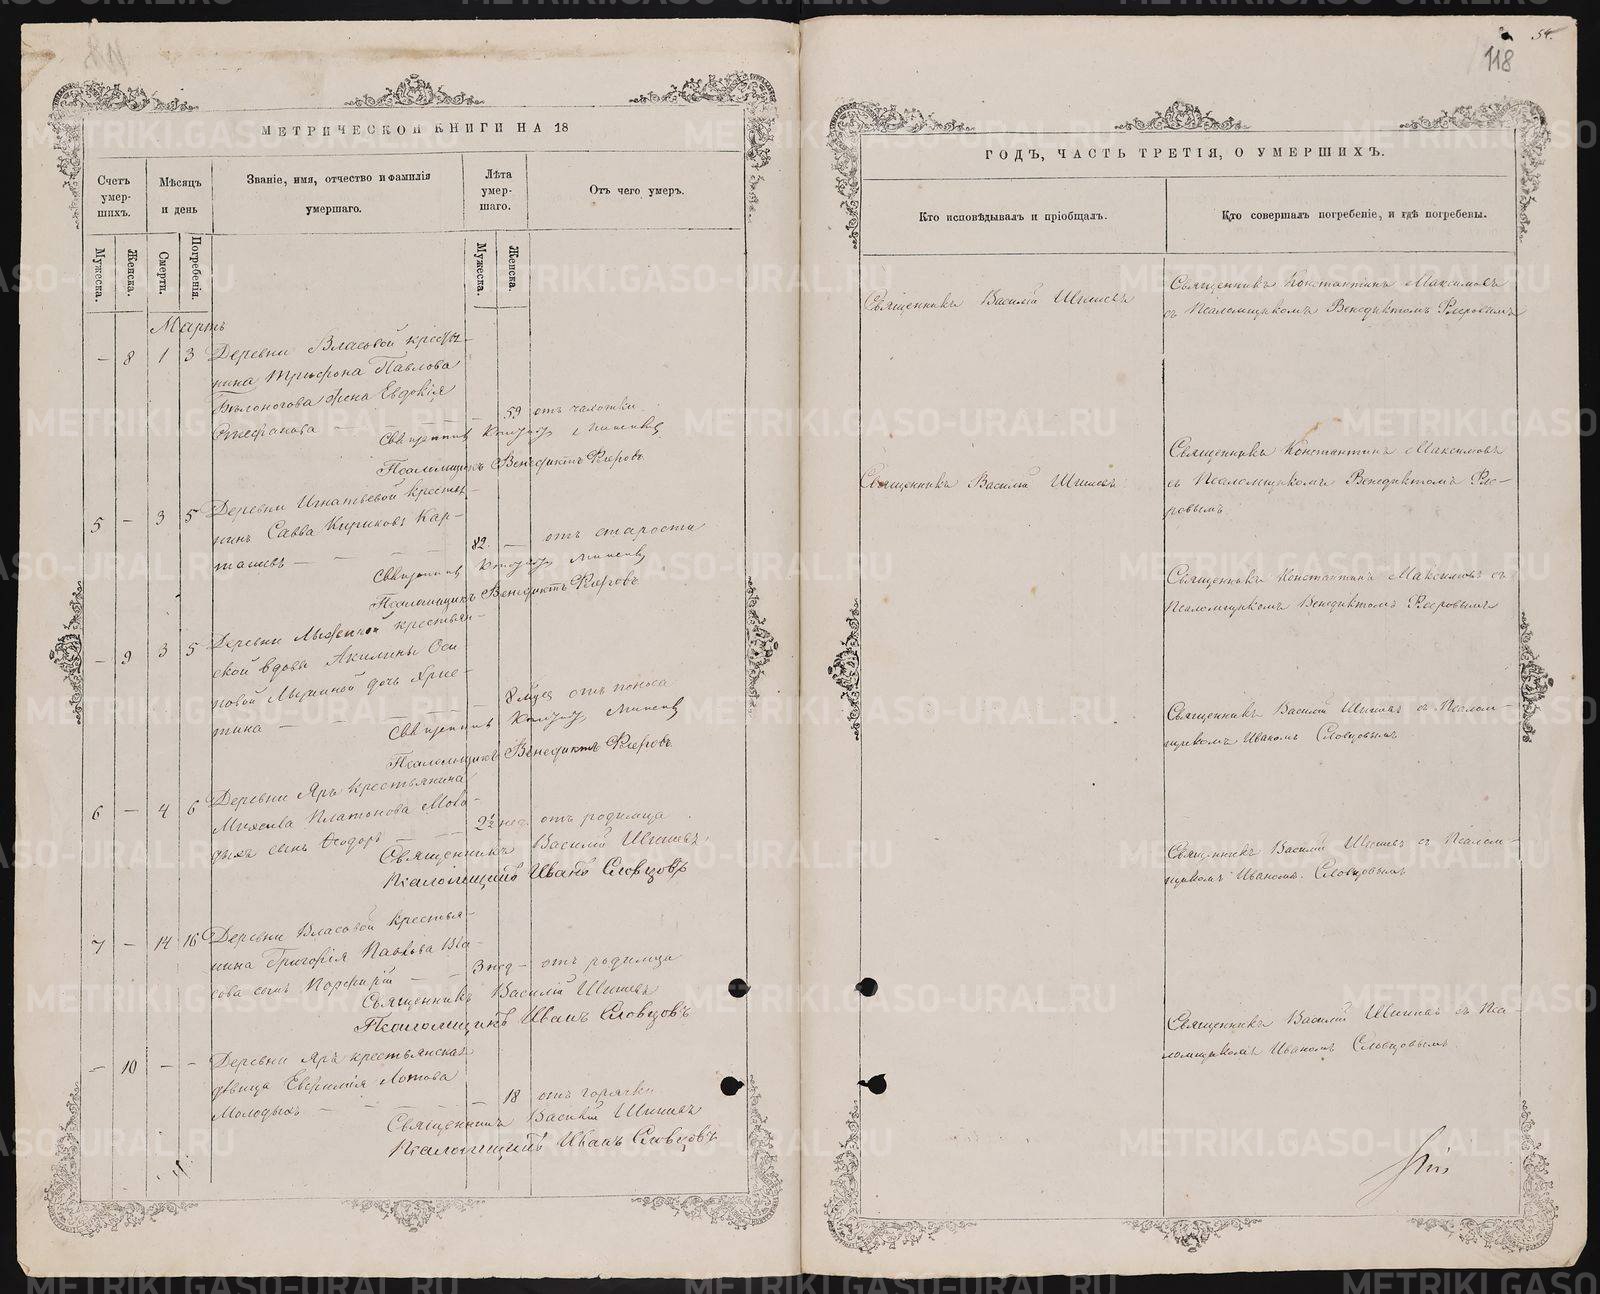 54.
118
МЕТРИЧЕСКОЙ КНИГИ НА 18
Счетъ умер-
шихъ.
Мѣсяцъ
и день
Званіе, имя, отчество и фамилія
умершаго.
Лѣта
умер-
шаго.
Отъ чего умеръ.
Мужеска.
Женска.
Смерти.
Погребенія.
Мужеска.
Женска.
Мартъ
— 8 1 3 Деревни Власовой крестья-
нина Трифона Павлова
Бѣлоногова жена Евдокія
Стефанова — 59 отъ чахотки
Псаломщикъ Венедиктъ Флеровъ
5 — 3 5 Деревни Игнатьевой крестья-
нинъ Савва Кириковъ Кар-
ташевъ — 82. — отъ старости
Псаломщикъ Венедиктъ Флеровъ
— 9 3 5 Деревни крестьян-
ской вдовы Акилины Оси
повой дочь Хрис-
тина — 8 мѣсц отъ поноса
Псаломщикъ Венедиктъ Флеровъ
6 — 4 6 Деревни Яръ крестьянина
Платонова Моло-
дыхъ сынъ Ѳеодоръ — 2½ нед. отъ родимца
Священникъ Василій Шишевъ
Псаломщикъ Иванъ Словцовъ
7 — 14 16 Деревни Власовой крестья-
нина Григорія Павлова Вла-
сова сынъ Порфирій — 3 нед — отъ родимца
Священникъ Василій Шишевъ
Псаломщикъ Иванъ Словцовъ
— 10 — — Деревни Яръ крестьянская
дѣвица Евфимія Лотова
Молодыхъ — 18 отъ горячки
Священникъ Василій Шишевъ
Псаломщикъ Иванъ Словцовъ
ГОДЪ, ЧАСТЬ ТРЕТІЯ, О УМЕРШИХЪ.
Кто исповѣдывалъ и пріобщалъ.
Кто совершалъ погребеніе, и гдѣ погребены.
Священникъ Василій Шишевъ
Священникъ Константинъ Максимовъ
съ Псаломщикомъ Венедиктомъ Флеровымъ
Священникъ Василій Шишевъ
Священникъ Константинъ Максимовъ
съ Псаломщикомъ Венедиктомъ Фле-
ровымъ
Священникъ Константинъ Максимовъ съ
Псаломщикомъ Венедиктомъ Флеровымъ
Священникъ Василій Шишевъ съ Псалом-
щикомъ Иваномъ Словцовымъ
Священникъ Василій Шишевъ съ Псалом-
щикомъ Иваномъ Словцовымъ
Священникъ Василій Шишевъ съ Пса-
ломщикомъ Иваномъ Словцовымъ
METRIKI.GASO-URAL.RU